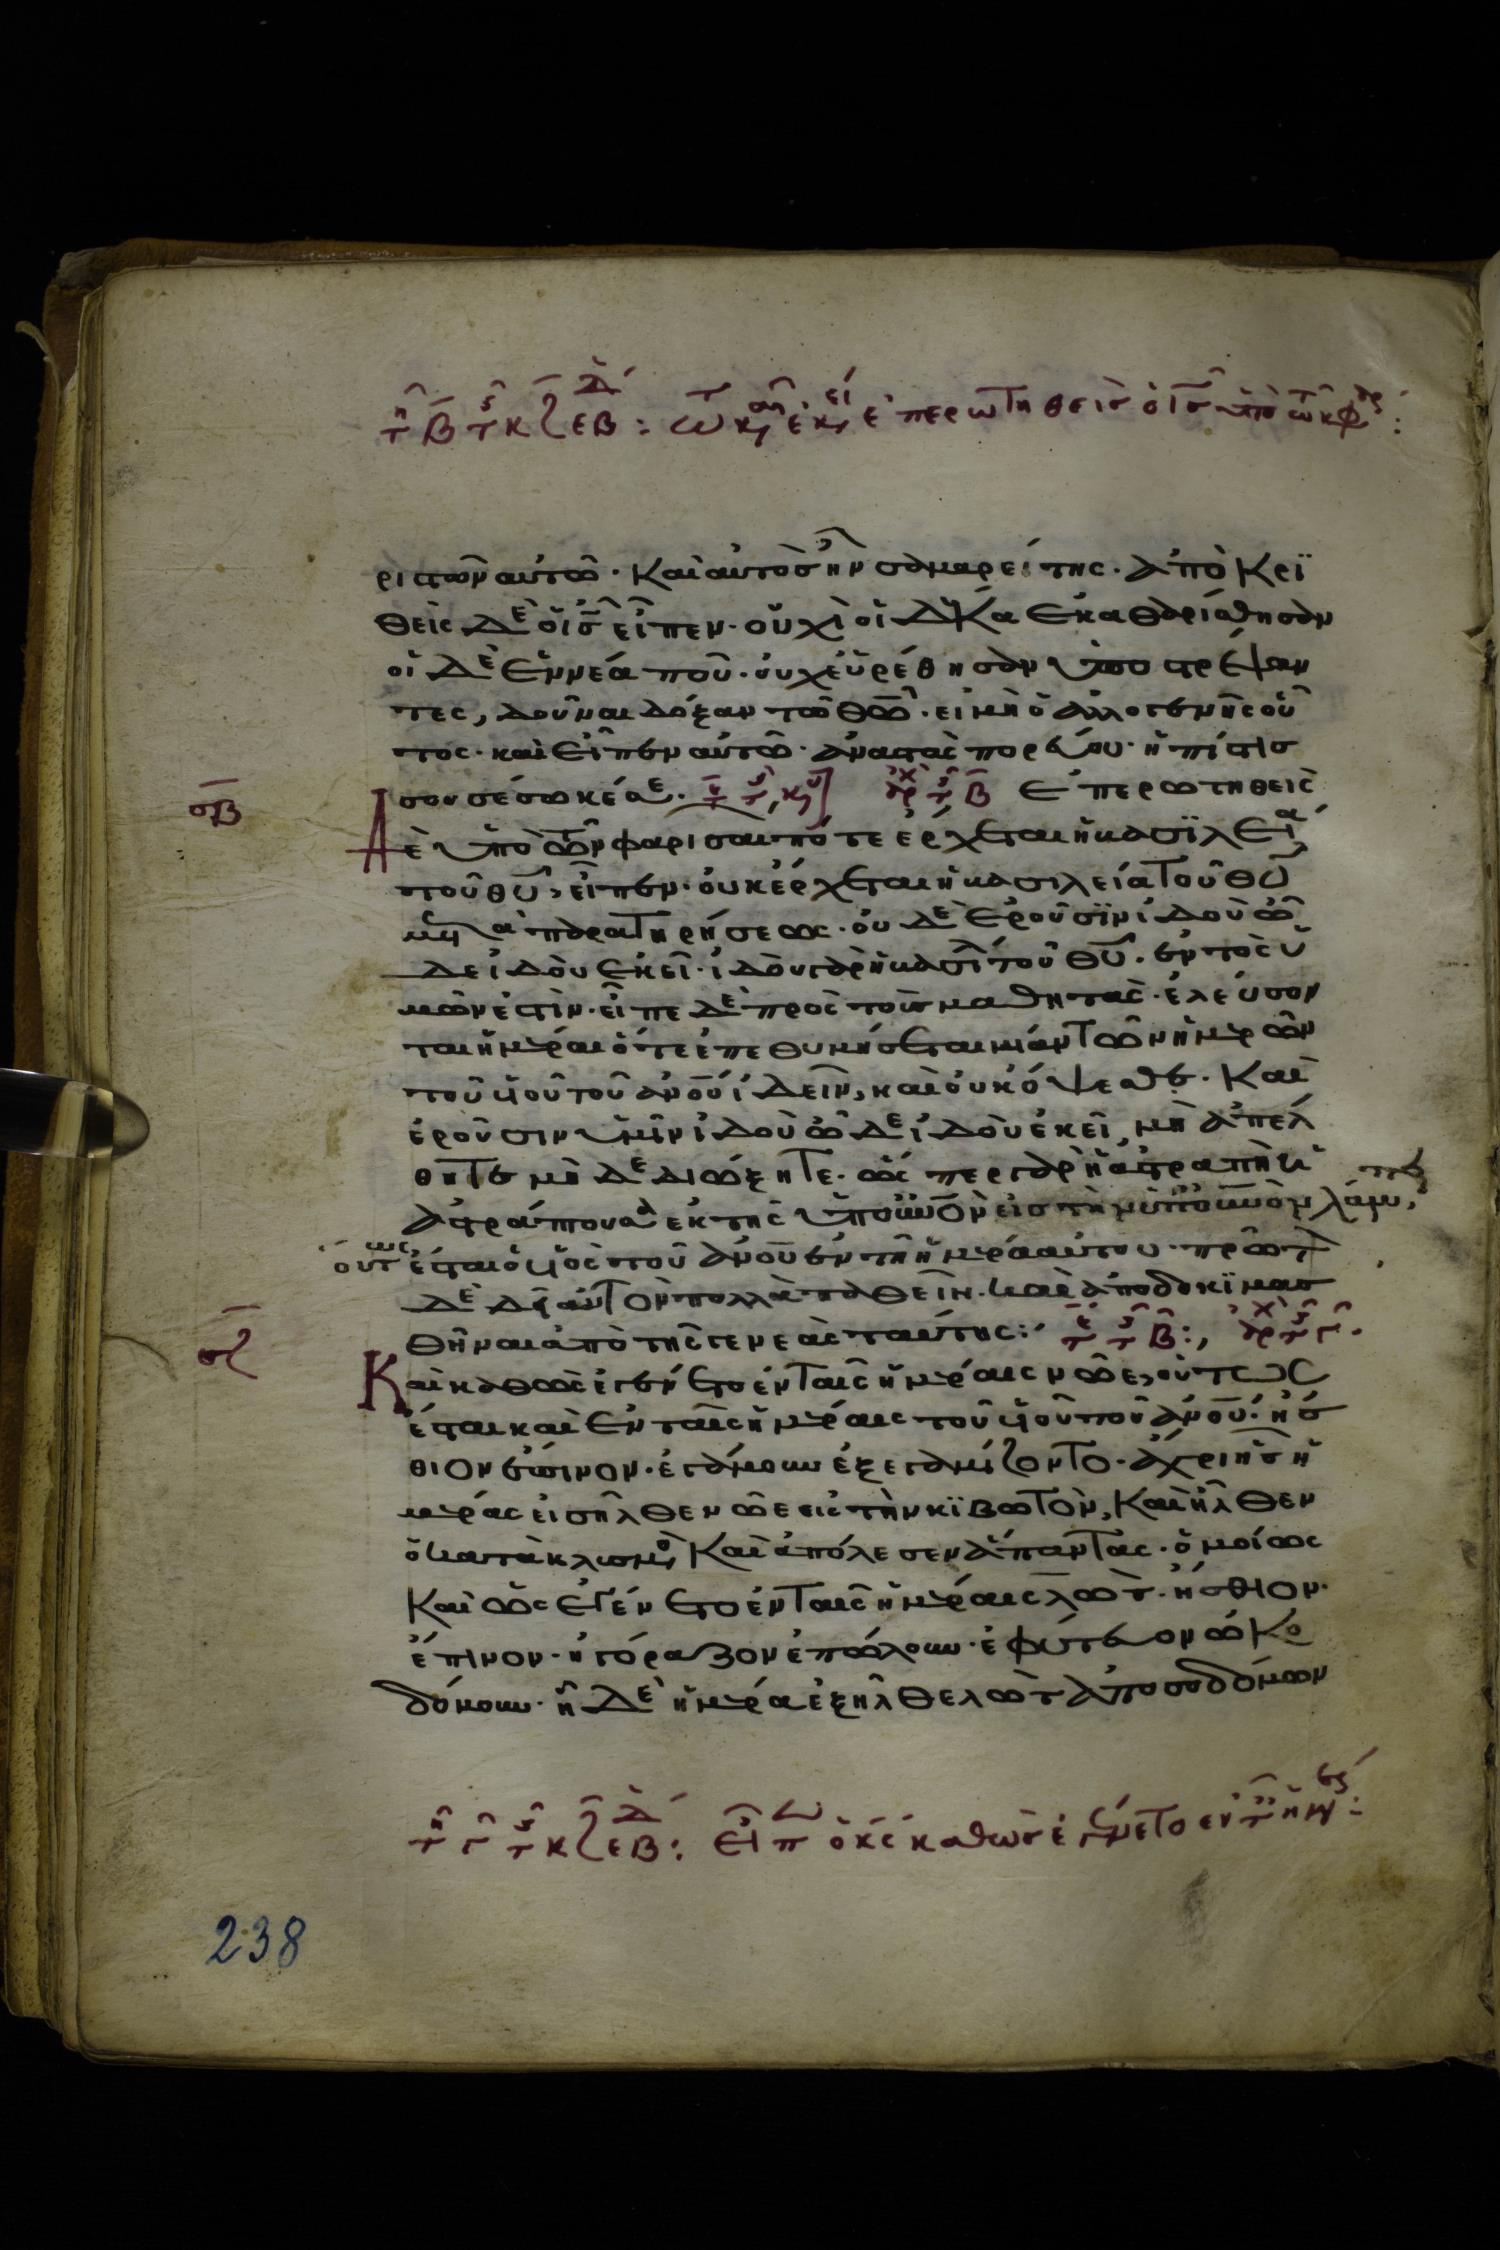 τῇ Β τῆς κζ ἑβδ: τῷ καιρῷ ἐκεί ἐπερωτηθεὶσ ὁ ισ ὑπὸ τῶν φαρ:
ριστῶν αὐτῶ· Καὶ αὐτὸσ ἦν σαμαρείτης· ἀπὸ Κρϊ
θεὶς Δὲ ὁ ισ εἶπεν· οὐχὶ οἱ Δέκα ἐκαθαρίσθησαν
οἱ Δὲ ἐννέα ποῦ· οὐχ εὑρέθησαν ὑποστρέψαν
τες, δοῦναι δόξαν τῶ θω· εἰ μὴ ὁ ἀλλογενὴς οὗ
τος· καὶ εἶπεν αὐτῶ· ἀναστὰς πορεύου· ἡ πίστισ
σου σέσωκέ σε. ἐπερωτηθεὶς
σβ
Δὲ ὑπὸ τῶν φαρισαι πότε ἔρχεται ἡ βασϊλεία
τοῦ θυ, εἶπεν· οὐκ ἔρχεται ἡ βασιλεία τοῦ θυ
μετὰ παρατηρήσεως· οὐδὲ ἐροῦσϊν ἰδοὺ ὧ
Δε ἰδοὺ ἐκεῖ· ἰδοὺ γὰρ ἡ βασι τοῦ θυ· ἐντὸς ὑ
μῶν ἐστὶν· εἶπε Δὲ πρὸς τοὺσ μαθητὰς· ἐλεύσον
ται ἡμέραι ὅτε ἐπεθυμήσεται μίαν τῶν ἡμερῶν
τοῦ υἱοῦ τοῦ ανου ἰδεῖν, καὶ οὐκ ὄψεσθε· Καὶ
ἐροῦσιν ὑμῖν ἰδοὺ ὧδε ἰδοὺ ἐκεῖ, μὴ ἀπέλ
θητε μὴ Δὲ διώξητε· ὥσπερ γὰρ ἡ ἀστραπὴ ἡ
ἀστράπτουσα ἐκ τῆς ὑπ οὐνὸν εἰσ τὴν ὑπ οὐνὸν λάμπει,
οὕτως ἔσται ὁ υἱὸς τοῦ ανου ἐν τῆ ἡμέρα αὐτου· πρῶτον
Δὲ Δεῖ αὐτὸν πολλὰ παθεῖν· καὶ ἀποδοκϊμασ
θῆναι ἀπὸ τῆς γενεᾶς ταύτης:
σζ
Καὶ καθὼς ἐγένετο ἐν ταῖς ἡμέραις νῶε, οὕτως
ἔσται καὶ ἐν ταῖς ἡμέραις τοῦ υἱοῦ τοῦ ανου· ἤσ
θιον ἔπινον· ἐγάμουν ἐξεγαμίζοντο· ἄχρι ἧσ ἡ
μέρας εἰσῆλθεν νῶε εἰς τὴν κϊβωτὸν, Καὶ ἦλθεν
ὁ κατακλυσμὸς, Καὶ ἀπόλεσεν ἅπαντας· ὁμοίως
Καὶ ὡς ἐγένετο ἐν ταῖς ἡμέραις λώτ· ἤσθιον·
ἔπινον· ἠγόραζον ἐπώλουν· ἐφύτευον ὠκο
δόμουν· ἧ Δὲ ἡμέρα ἐξῆλθε λὼτ ἀπὸ σοδόμων
τῇ Γ τῆς κζ ἑβδ: Εἶπ ὁ κς καθὼσ ἐγένετο ἐν τ ἡμέ:
238